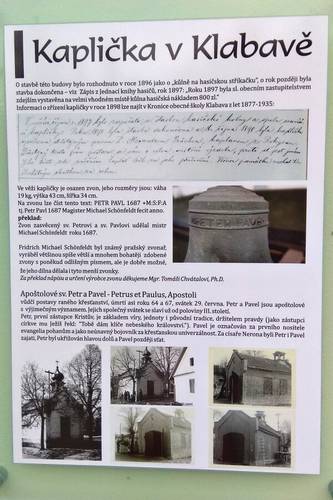 Kaplička v Klabavě
O stavbě této budovy bylo rozhodnuto v roce 1896 jako o „kůlně na hasičskou stříkačku“, o rok později byla
stavba dokončena – viz Zápis z Jednací knihy hasičů, rok 1897: „Roku 1897 byla sl. obecním zastupitelstvem
zdejším vystavěna na velmi vhodném místě kůlna hasičská nákladem 800 zl.“
Informaci o zřízení kapličky v roce 1898 lze najít v Kronice obecné školy Klabava z let 1877-1935:
Ve věži kapličky je osazen zvon, jeho rozměry jsou: váha
19 kg, výška 43 cm, šířka 34 cm.
Na zvonu lze číst tento text: PETR PAVL 1687 +M:S:P:A
tj. Petr Pavl 1687 Magister Michael Schönfeldt fecit anno.
překlad:
Zvon zasvěcený sv. Petrovi a sv. Pavlovi udělal mistr
Michael Schönfeldt roku 1687.
PETR PAVEL
Fridrich Michael Schönfeldt byl známý pražský zvonař,
vyráběl většinou spíše větší a mnohem bohatěji zdobené
zvony s poněkud odlišným písmem, ale je dobře možné,
že jeho dílna dělala i tyto menší zvonky.
Za překlad nápisu a určení výrobce zvonu děkujeme Mgr. Tomáši Chvátalovi, Ph.D.
Apoštolové sv. Petr a Pavel - Petrus et Paulus, Apostoli
vůdčí postavy raného křesťanství, úmrtí asi roku 64 a 67, svátek 29. června. Petr a Pavel jsou apoštolové
s výjimečným významem. Jejich společný svátek se slaví už od poloviny III. století.
Petr, první zástupce Kristův, je základem víry, jednoty i původní tradice, držitelem pravdy (jako zástupci
církve mu Ježíš řekl: "Tobě dám klíče nebeského království."). Pavel je označován za prvního nositele
evangelia pohanům a jako neúnavný bojovník za křesťanskou univerzálnost. Za císaře Nerona byli Petr i Pavel
zajati, Petr byl ukřižován hlavou dolů a Pavel později sťat.